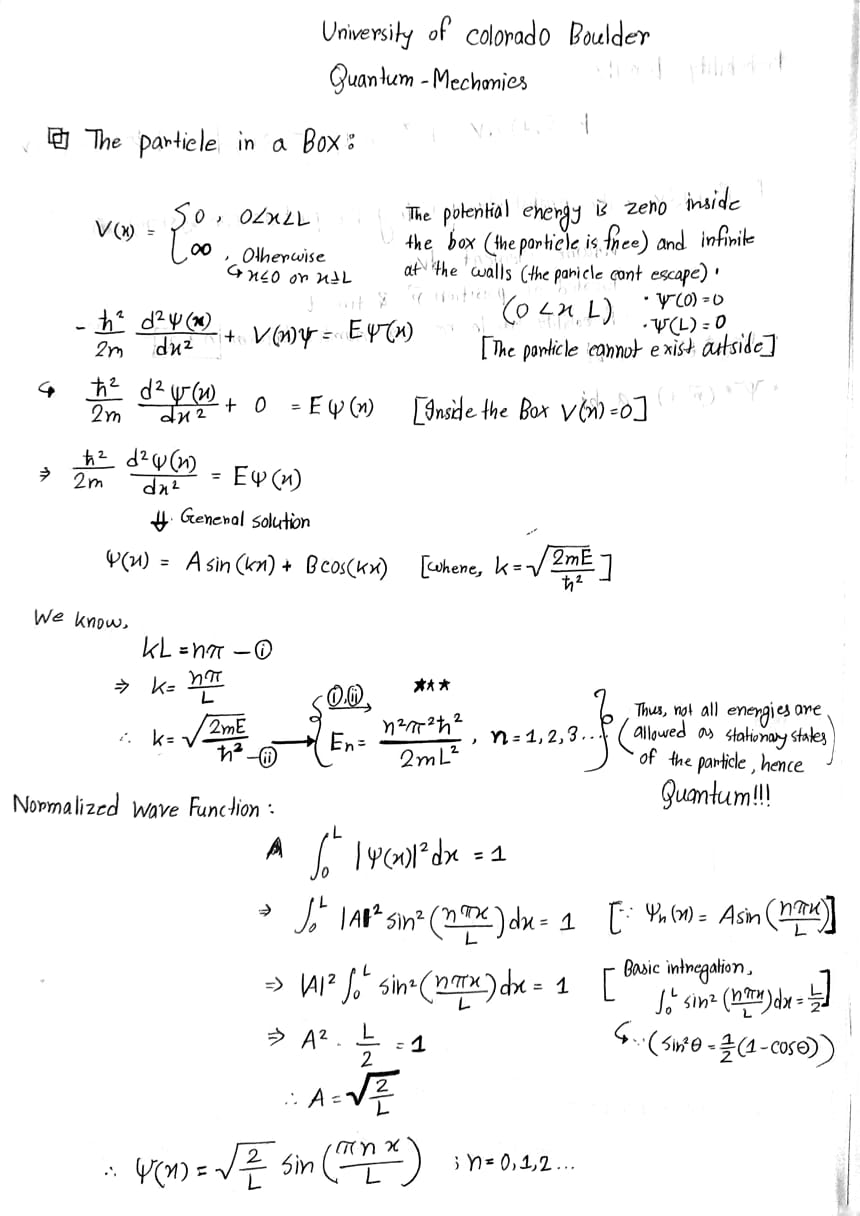 University of colorado Boulder
Quantum - Mechanics
The particle in a Box:
V(x) = { 0, 0<x<L
∞, Otherwise
↳ x≤0 or x≥L
The potential energy is zero inside
the box (the particle is free) and infinite
at the walls (the particle cant escape).
(0 < x L) · ψ(0) = 0
· ψ(L) = 0
[The particle cannot exist outside]
- ħ²/2m d²ψ(x)/dx² + V(x)ψ = Eψ(x)
↳ ħ²/2m d²ψ(x)/dx² + 0 = Eψ(x) [Inside the Box V(x) = 0]
⇒ ħ²/2m d²ψ(x)/dx² = Eψ(x)
⇓ General solution
ψ(x) = A sin(kx) + B cos(kx) [where, k = √(2mE/ħ²)]
We know,
kL = nπ — (i)
⇒ k = nπ/L
∴ k = √(2mE/ħ²) — (ii) → { (i),(ii) Eₙ = n²π²ħ²/2mL², n = 1,2,3... }
***
(Thus, not all energies are
allowed as stationary states
of the particle, hence
Quantum!!!
Normalized wave Function:
∫₀ᴸ |ψ(x)|² dx = 1
⇒ ∫₀ᴸ |A|² sin²(nπx/L) dx = 1 [∵ ψₙ(x) = A sin(nπx/L)]
⇒ |A|² ∫₀ᴸ sin²(nπx/L) dx = 1 [Basic intregation,
∫₀ᴸ sin²(nπx/L) dx = L/2]
⇒ A² . L/2 = 1 ↳ ∵ (sin²θ = 1/2(1-cosθ))
∴ A = √(2/L)
∴ ψ(x) = √(2/L) sin(πnx/L) ; n = 0,1,2...